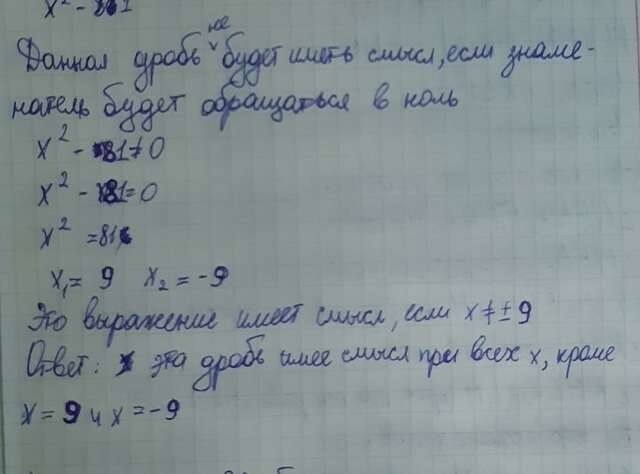 x² - 81
Данная дробь не будет иметь смысл, если знаме-
натель будет обращаться в ноль
x² - 81 ≠ 0
x² - 81 = 0
x² = 81
x₁ = 9 x₂ = -9
Это выражение имеет смысл, если x ≠ ± 9
Ответ: эта дробь имее смысл при всех x, кроме
x = 9 и x = -9